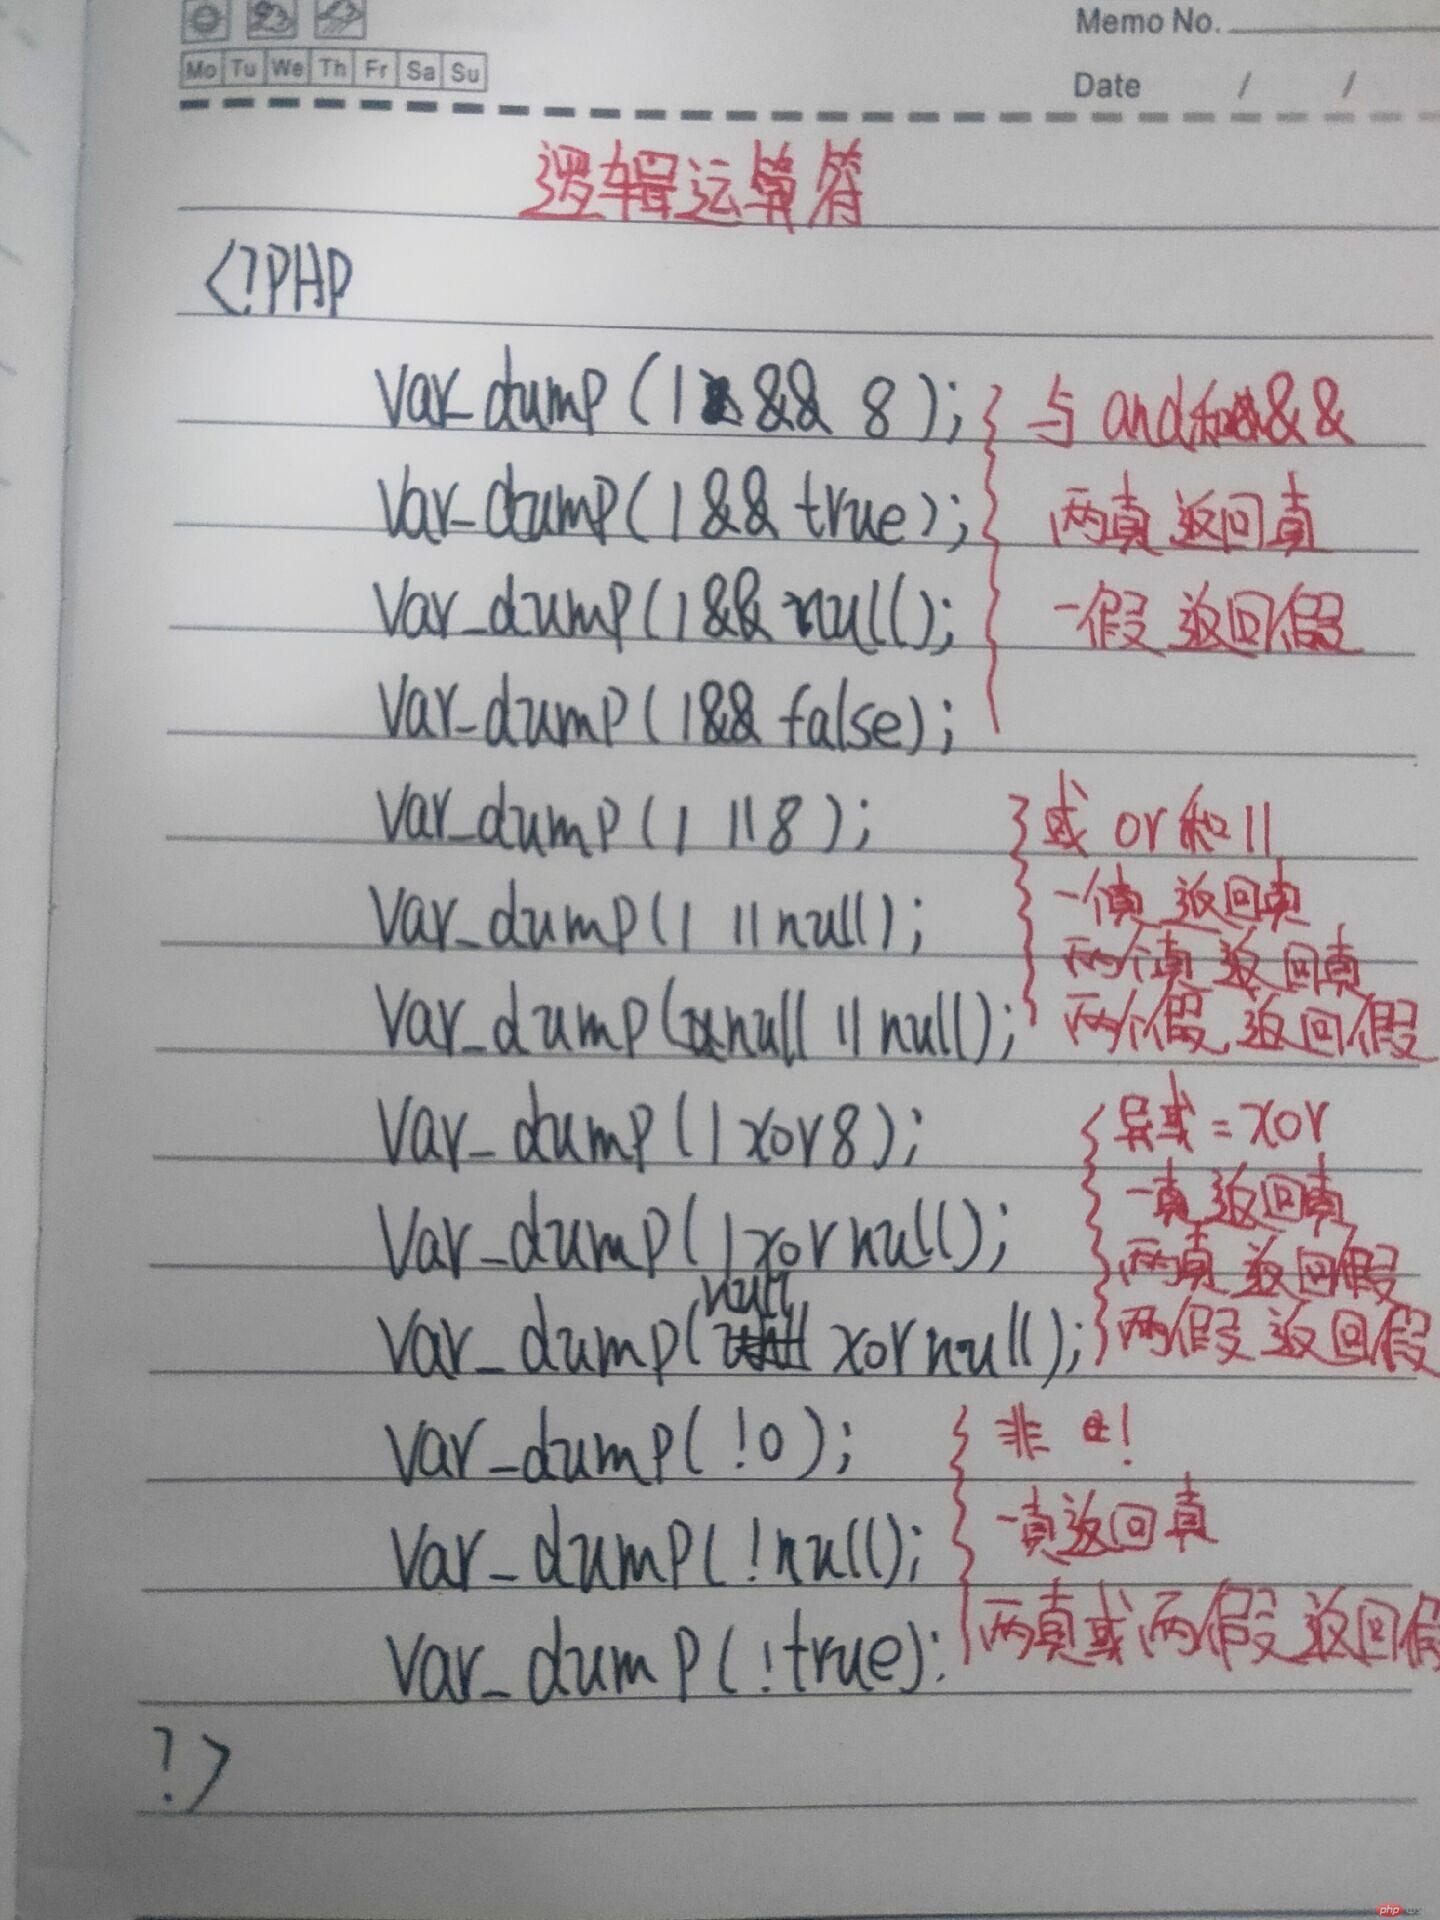 Memo No.
Mo Tu We Th Fr Sa Su
Date / /
逻辑运算符
<?PHP
var_dump(1 && 8); 与 and和&&
var_dump(1 && true); 两真返回真
var_dump(1 && null); 一假返回假
var_dump(1 && false);
var_dump(1 || 8); 或 or和||
var_dump(1 || null); 一个真返回真
两个真返回真
var_dump(null || null); 两个假返回假
var_dump(1 xor 8); 异或=xor
一真返回真
var_dump(1 xor null); 两真返回假
var_dump(null xor null); 两假返回假
var_dump(!0); 非 !
var_dump(!null); 一真返回真
var_dump(!true): 两真或两假返回假
?>
php